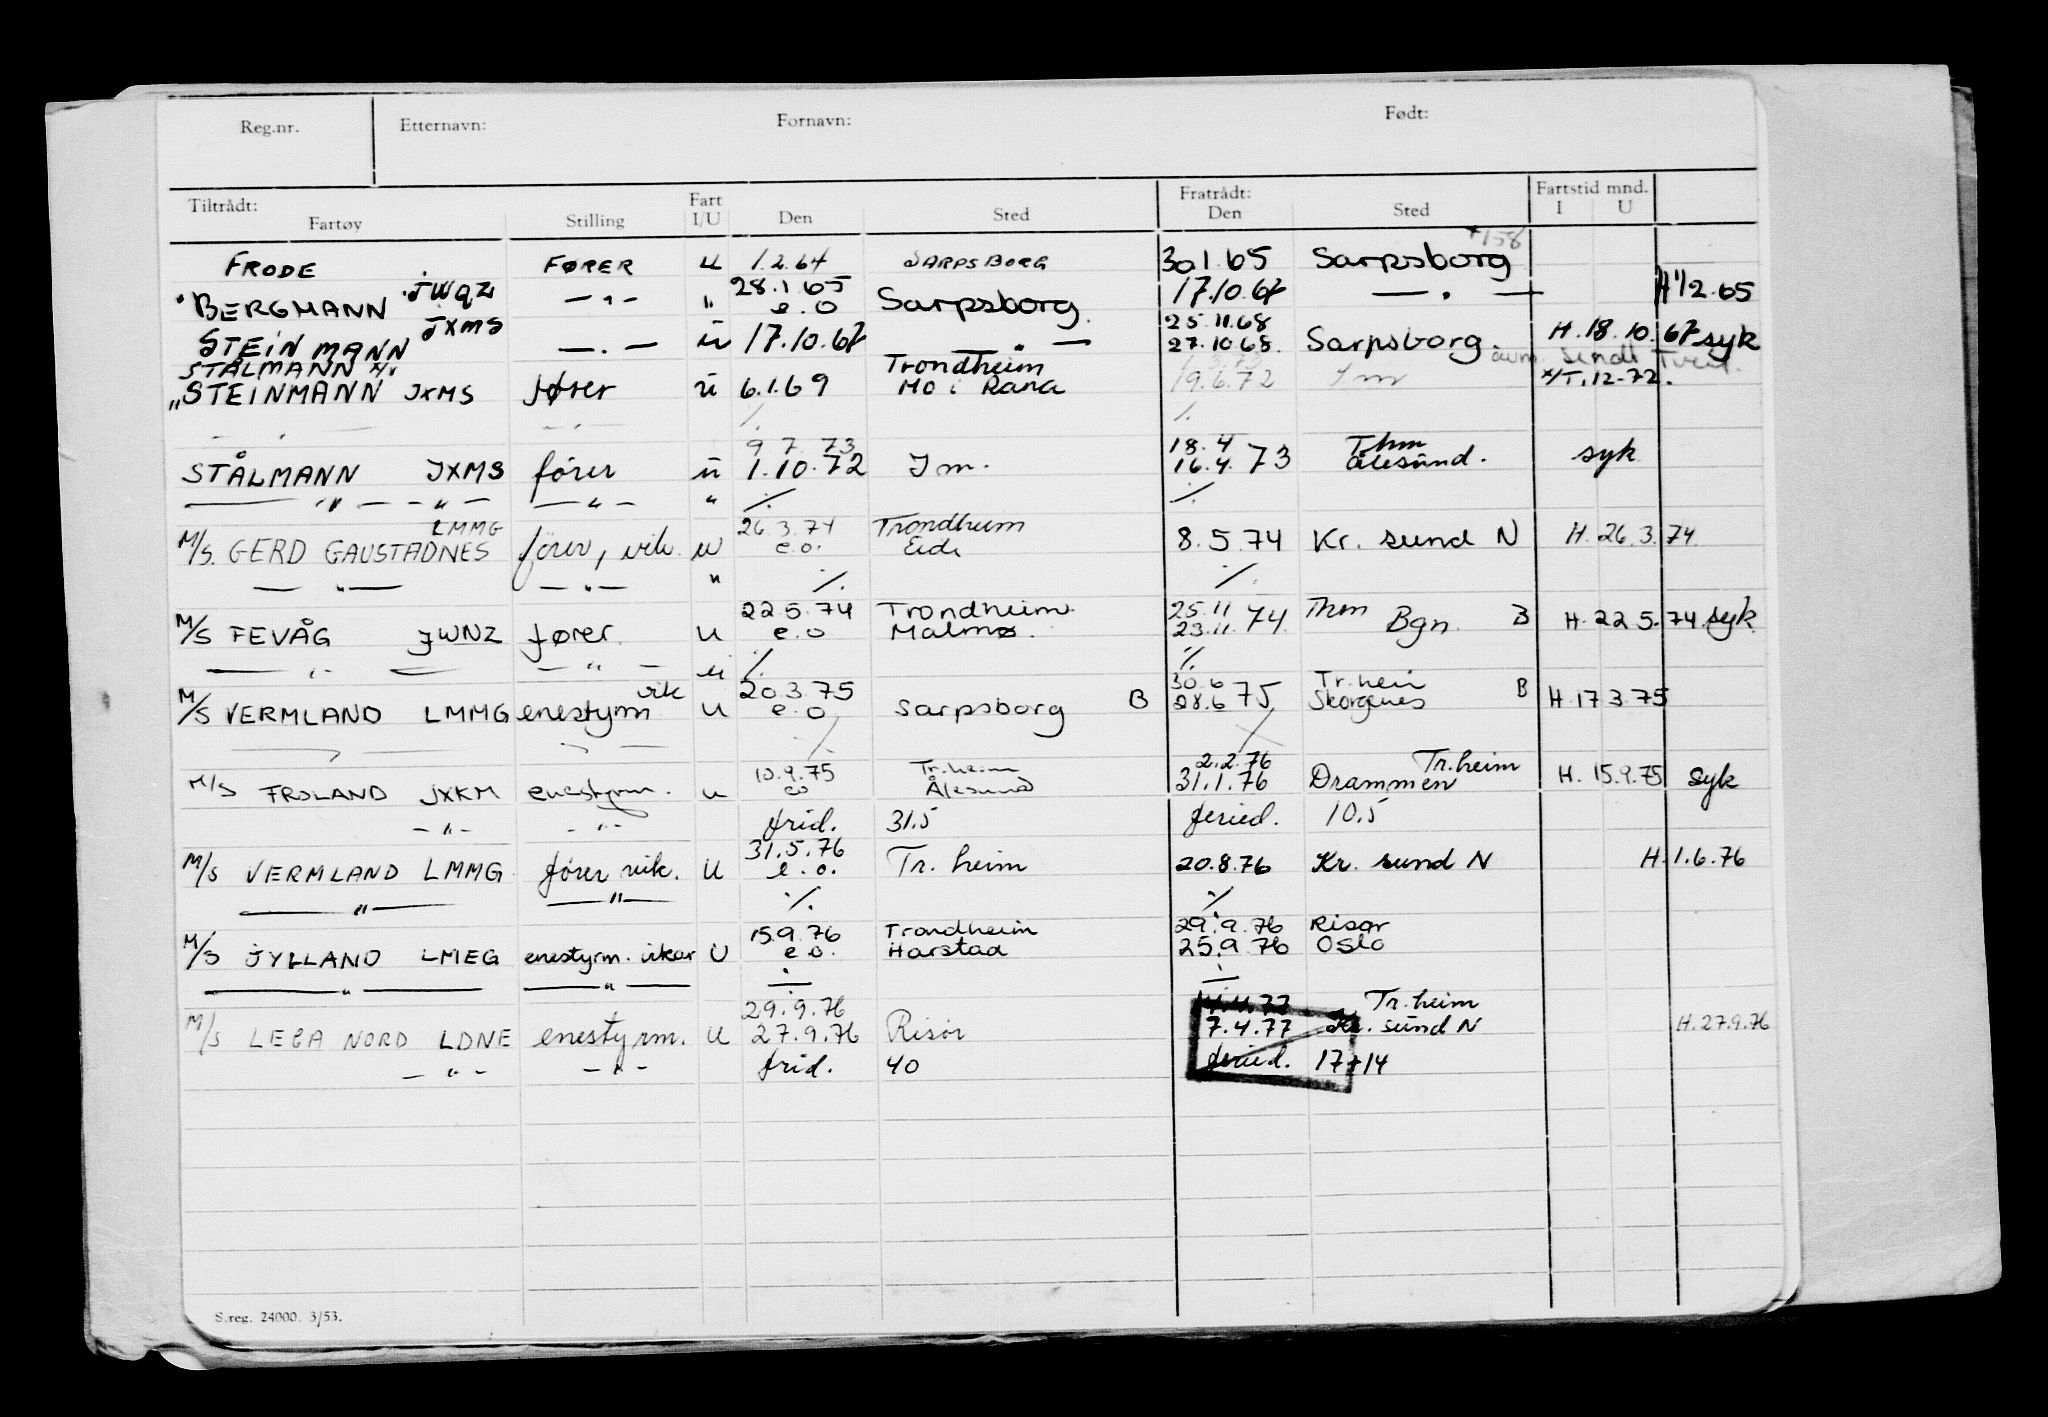 Reg.nr. Etternavn: Fornavn: Født:
Tiltrådt: Fart Fratrådt: Fartstid mnd.
Fartøy Stilling I/U Den Sted Den Sted I U
+158
FRODE FØRER U 1.2.64 SARPSBORG 30.1.65 Sarpsborg
28.1.65
BERGMANN JWQZ — " — " e.o Sarpsborg 17.10.67 — " — H 1/2.65
25.11.68
STEINMANN JXMS — " — ü 17.10.67 — " — 27.10.68. Sarpsborg. H. 18.10.67 syk
STÅLMANN x/ Trondheim
" STEINMANN JXMS fører ü 6.1.69 Mo i Rana 19.6.72 Im x/T. 12-72.
— " — — " — % %
9.7.73 18.4 Thm
STÅLMANN JXMS fører ü 1.10.72 Im. 16.4.73 Ålesund. syk
— " — " — — " — " % %
LMMG 26.3.74 Trondheim
M/S. GERD GAUSTADNES fører, vik. ü e.o. Eide 8.5.74 Kr. sund N H. 26.3.74
— " — — " — " % %
22.5.74 Trondheim 25.11 Thm
M/S FEVÅG JWNZ fører. U e.o Malmø. 23.11.74. Bgn. B H. 22.5.74. syk
— " — — " — ü % %
vik 20.3.75 30.6 Tr.heim
M/S VERMLAND LMMG enestyrm U e.o Sarpsborg B 28.6.75 Skorgenes B H. 17.3.75
— " — — " — % %
10.9.75 Tr.heim 2.2.76 Tr.heim
M/S FROLAND JXKM enestyrm. u eo Ålesund 31.1.76 Drammen H. 15.9.75 syk
— " — — " — frid. 31.5 feried. 10.5
31.5.76
M/S VERMLAND LMMG fører vik. U e.o. Tr. heim 20.8.76 Kr. sund N H. 1.6.76
— " — — " — % %
15.9.76 Trondheim 29.9.76 Risør
M/S JYLLAND LMEG enestyrm. vikar U e.o. Harstad 25.9.76 Oslo
— " — — " — ÷ ÷
29.9.76 14.4.77 Tr.heim
M/S LECA NORD LDNE enestyrm. U 27.9.76 Risør 7.4.77 Kr. sund N H. 27.9.76
— " — — " — frid. 40 feried. 17+14
S.reg. 24000. 3/53.